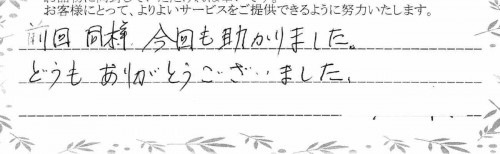 お客様にとって、よりよいサービスをご提供できるように努力いたします。
前回同様 今回も助かりました。
どうもありがとうございました、